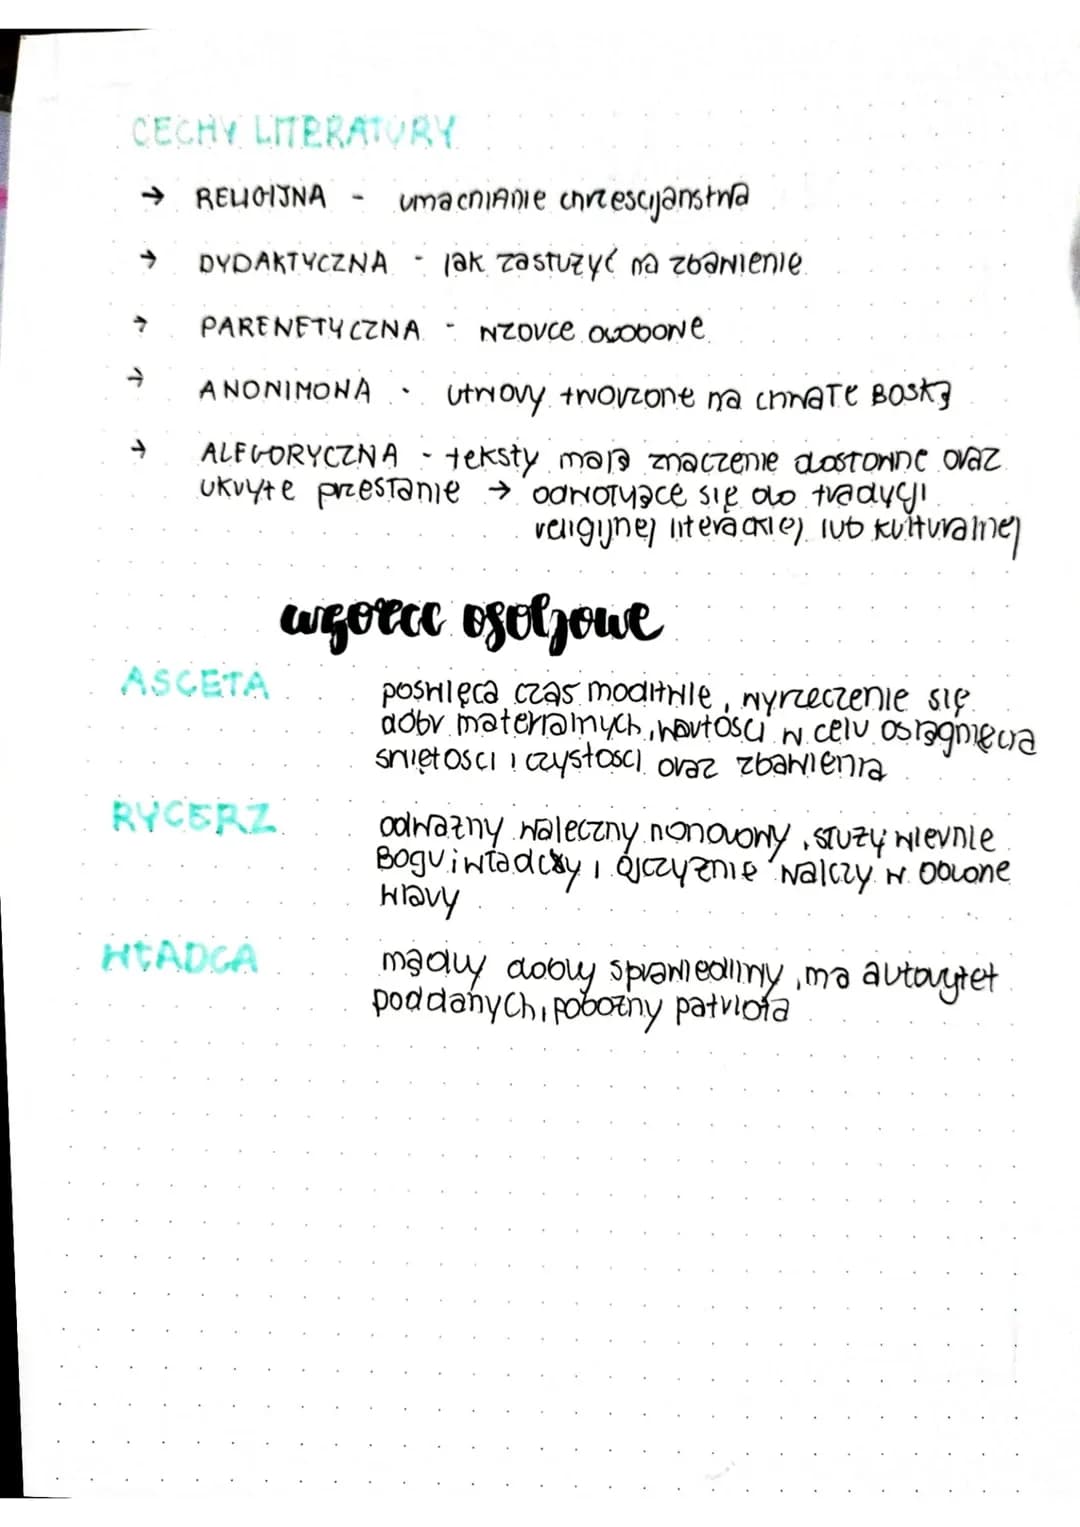 CECHY LITERATURY
→ RELIGIJNA - umacnianie chrześcijaństwa
→ DYDAKTYCZNA - jak zasłużyć na zbawienie
→ PARENETYCZNA - wzorce osobowe
→ ANONIMOWA - utwory tworzone na chwałę Boską
→ ALEGORYCZNA - teksty mają znaczenie dosłowne oraz
ukryte przesłanie → odwołujące się do tradycji
religijnej literackiej lub kulturalnej
wzorce osobowe
ASCETA poświęca czas modlitwie, wyrzeczenie się
dóbr materialnych, wartości w celu osiągnięcia
świętości i czystości oraz zbawienia
RYCERZ odważny waleczny honorowy, służy wiernie
Bogu i władcy i ojczyźnie walczy w obronie
wiary
WŁADCA mądry dobry sprawiedliwy, ma autorytet
poddanych, pobożny patriota